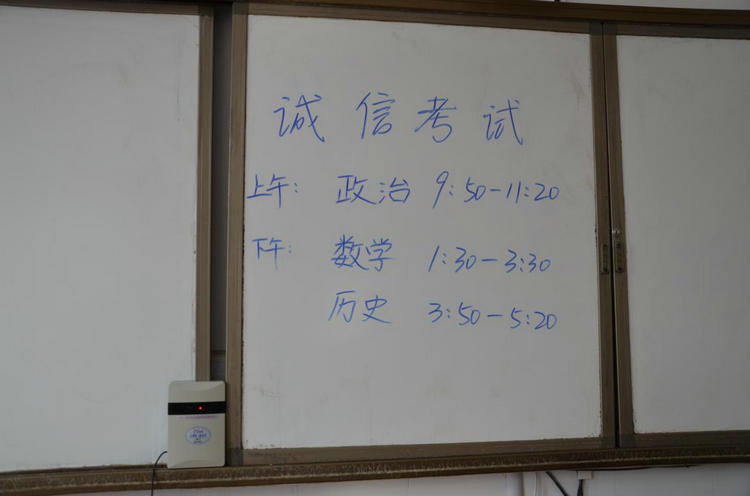 诚信考试
上午: 政治 9:50-11:20
下午: 数学 1:30-3:30
历史 3:50-5:20